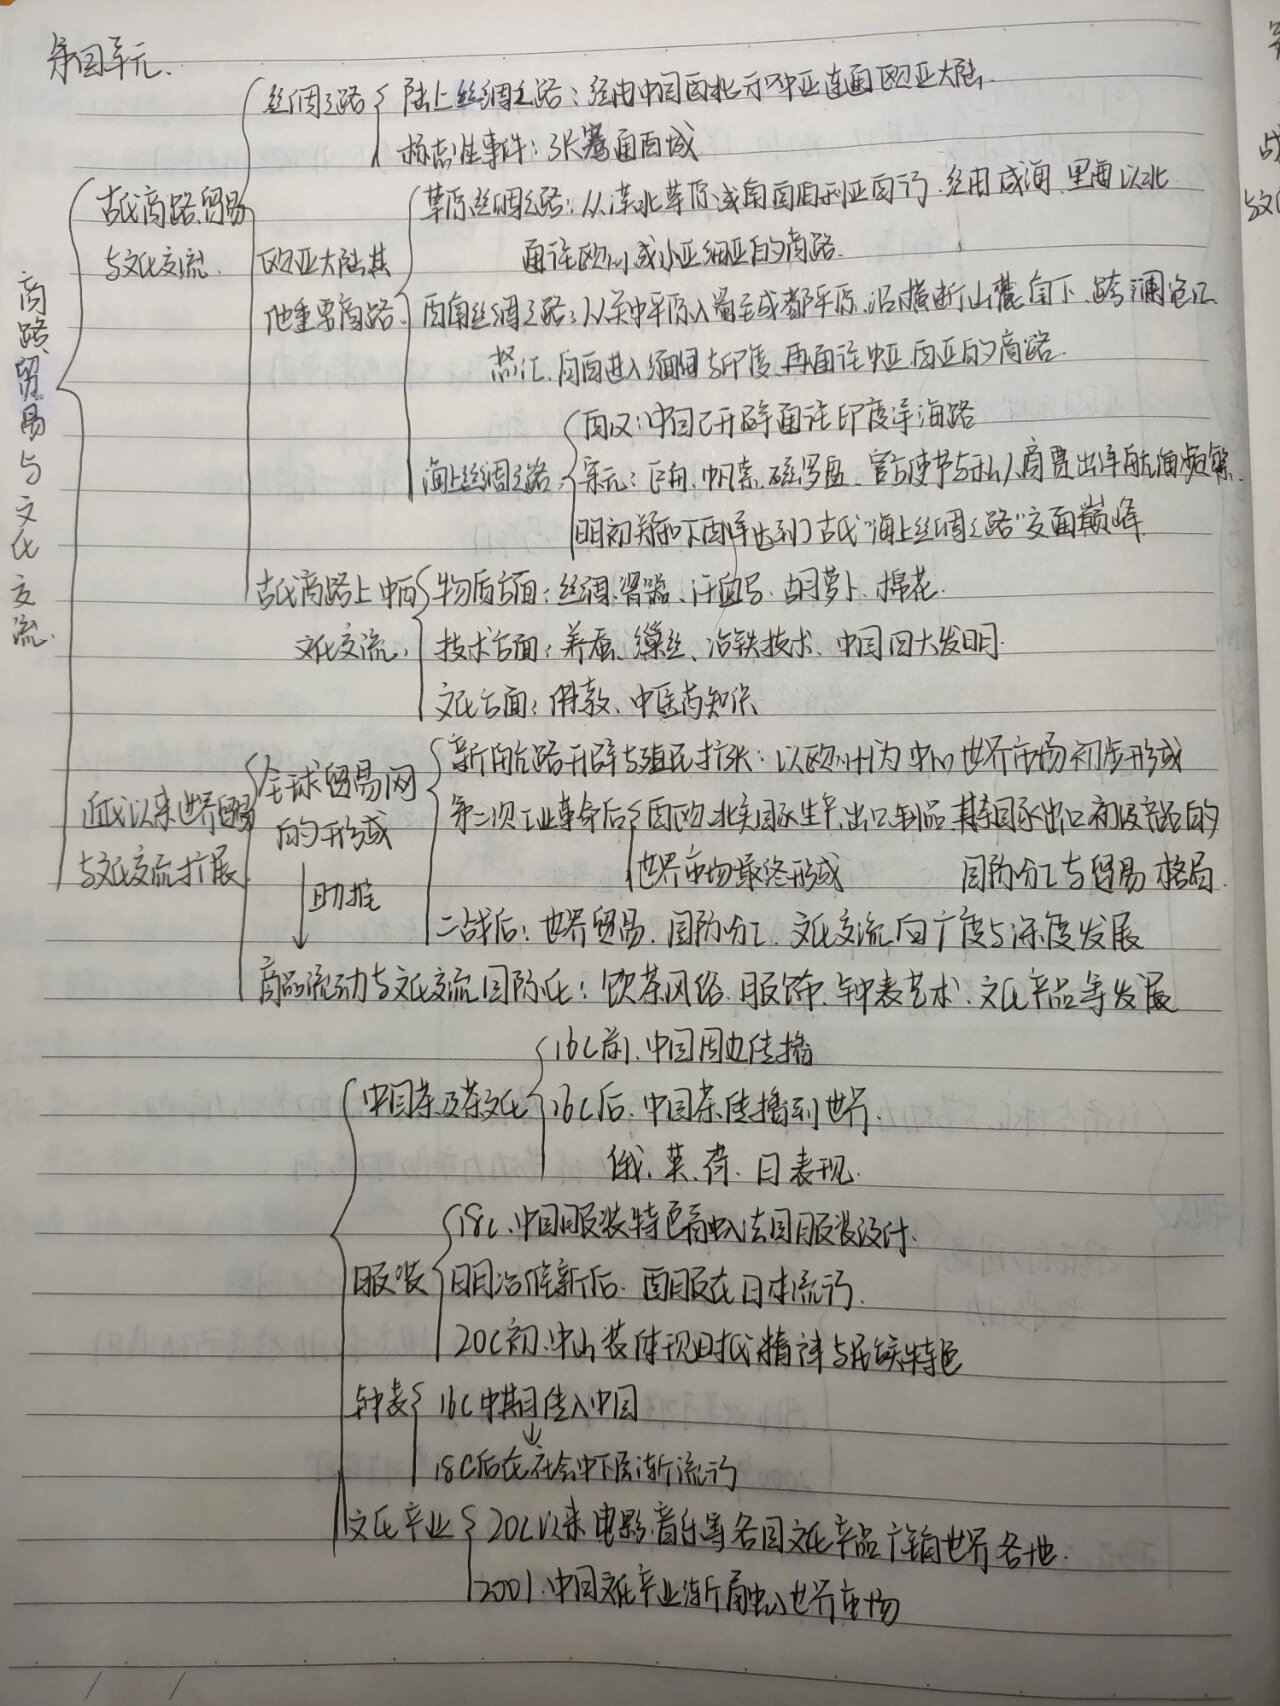 第四单元.
商路、贸易与文化交流.
古代商路、贸易与文化交流.
丝绸之路
陆上丝绸之路：经由中国西北 中亚连通欧亚大陆.
标志性事件：张骞通西域
欧亚大陆其他重要商路.
草原丝绸之路：从漠北草原 西伯利亚西行，经由咸海、里海以北
通往欧洲或小亚细亚的商路.
西南丝绸之路：从关中平原入蜀至成都平原，沿横断山麓南下、跨澜沧江
怒江、向西进入缅甸与印度、再通往中亚、西亚的商路.
海上丝绸之路
西汉：中国已开辟通往印度洋海路
宋元：巨舟、帆索、磁罗盘、官方使节与私人商贾出洋航海频繁.
明初郑和下西洋达到了古代“海上丝绸之路”交通巅峰
古代商路上中西文化交流.
物质方面：丝绸、瓷器、汗血马、胡萝卜、棉花.
技术方面：养蚕、缫丝、冶铁技术、中国四大发明.
文化方面：佛教、中医药知识
近代以来世界贸易与文化交流扩展
全球贸易网的形成
新航路开辟与殖民扩张：以欧洲为中心世界市场初步形成
第二次工业革命后
西欧、北美国家生产、出口制品、其余国家出口初级产品的
国际分工与贸易格局.
世界市场最终形成
助推
二战后：世界贸易、国际分工、文化交流向广度与深度发展
商品流动与文化交流国际化：饮茶风俗、服饰、钟表艺术、文化产品等发展
中国茶及茶文化
16C前、中国周边传播
16C后、中国茶传播到世界.
俄、英、荷、日表现.
服装
18C、中国服装特色融入法国服装设计.
明治维新后、西服在日本流行.
20C初、中山装体现时代精神与民族特色
钟表
16C中期传入中国
↓
18C后在社会中下层渐流行
文化产业
20C以来电影、音乐等各国文化产品广销世界各地.
2001、中国文化产业渐融入世界市场